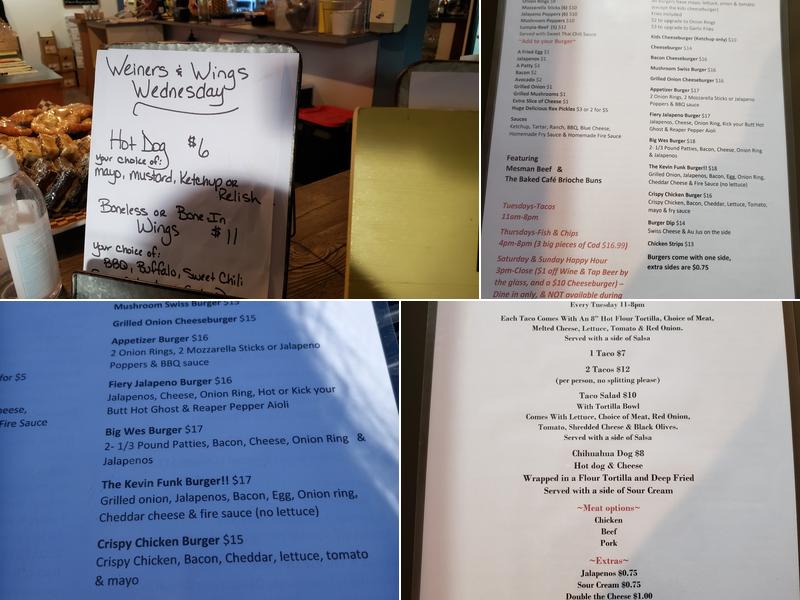 Weiners & Wings
Wednesday
Hot Dog $6
your choice of:
mayo, mustard, Ketchup or
Relish
Boneless or Bone In
Wings $11
your choice of:
BBQ, Buffalo, Sweet Chili
Onion Rings
Mozzarella Sticks (6) $10
Jalapeno Poppers (6) $10
Mushroom Poppers $10
Lumpia-Beef (5) $12
Served with Sweet Thai Chili Sauce
~Add to your Burger~
A Fried Egg $1
Jalapenos $1
A Patty $3
Bacon $2
Avocado $2
Grilled Onion $1
Grilled Mushrooms $1
Extra Slice of Cheese $1
Huge Delicious Rex Pickles $3 or 2 for $5
Sauces
Ketchup, Tartar, Ranch, BBQ, Blue Cheese,
Homemade Fry Sauce & Homemade Fire Sauce
Featuring
Mesman Beef &
The Baked Café Brioche Buns
Tuesdays-Tacos
11am-8pm
Thursdays-Fish & Chips
4pm-8pm (3 big pieces of Cod $16.99)
Saturday & Sunday Happy Hour
3pm-Close ($1 off Wine & Tap Beer by
the glass, and a $10 Cheeseburger) –
Dine in only, & NOT available during
All burgers have mayo, lettuce, onion & tomato
(except the kids cheeseburger)
Fries included
$2 to upgrade to Onion Rings
$3 to upgrade to Garlic Fries
Kids Cheeseburger (Ketchup only) $10
Cheeseburger $14
Bacon Cheeseburger $16
Mushroom Swiss Burger $16
Grilled Onion Cheeseburger $16
Appetizer Burger $17
2 Onion Rings, 2 Mozzarella Sticks or Jalapeno
Poppers & BBQ sauce
Fiery Jalapeno Burger $17
Jalapenos, Cheese, Onion Ring, Kick your Butt Hot
Ghost & Reaper Pepper Aioli
Big Wes Burger $18
2- 1/3 Pound Patties, Bacon, Cheese, Onion Ring
& Jalapenos
The Kevin Funk Burger!! $18
Grilled Onion, Jalapenos, Bacon, Egg, Onion Ring,
Cheddar Cheese & Fire Sauce (no lettuce)
Crispy Chicken Burger $16
Crispy Chicken, Bacon, Cheddar, Lettuce, Tomato,
mayo & fry sauce
Burger Dip $14
Swiss Cheese & Au Jus on the side
Chicken Strips $13
Burgers come with one side,
extra sides are $0.75
for $5
heese,
Fire Sauce
Mushroom Swiss Burger $15
Grilled Onion Cheeseburger $15
Appetizer Burger $16
2 Onion Rings, 2 Mozzarella Sticks or Jalapeno
Poppers & BBQ sauce
Fiery Jalapeno Burger $16
Jalapenos, Cheese, Onion Ring, Hot or Kick your
Butt Hot Ghost & Reaper Pepper Aioli
Big Wes Burger $17
2- 1/3 Pound Patties, Bacon, Cheese, Onion Ring &
Jalapenos
The Kevin Funk Burger!! $17
Grilled onion, Jalapenos, Bacon, Egg, Onion ring,
Cheddar cheese & fire sauce (no lettuce)
Crispy Chicken Burger $15
Crispy Chicken, Bacon, Cheddar, lettuce, tomato
& mayo
Every Tuesday 11-8pm
Each Taco Comes With An 8" Hot Flour Tortilla, Choice of Meat,
Melted Cheese, Lettuce, Tomato & Red Onion.
Served with a side of Salsa
1 Taco $7
2 Tacos $12
(per person, no splitting please)
Taco Salad $10
With Tortilla Bowl
Comes With Lettuce, Choice of Meat, Red Onion,
Tomato, Shredded Cheese & Black Olives.
Served with a side of Salsa
Chihuahua Dog $8
Hot dog & Cheese
Wrapped in a Flour Tortilla and Deep Fried
Served with a side of Sour Cream
~Meat options~
Chicken
Beef
Pork
~Extras~
Jalapenos $0.75
Sour Cream $0.75
Double the Cheese $1.00